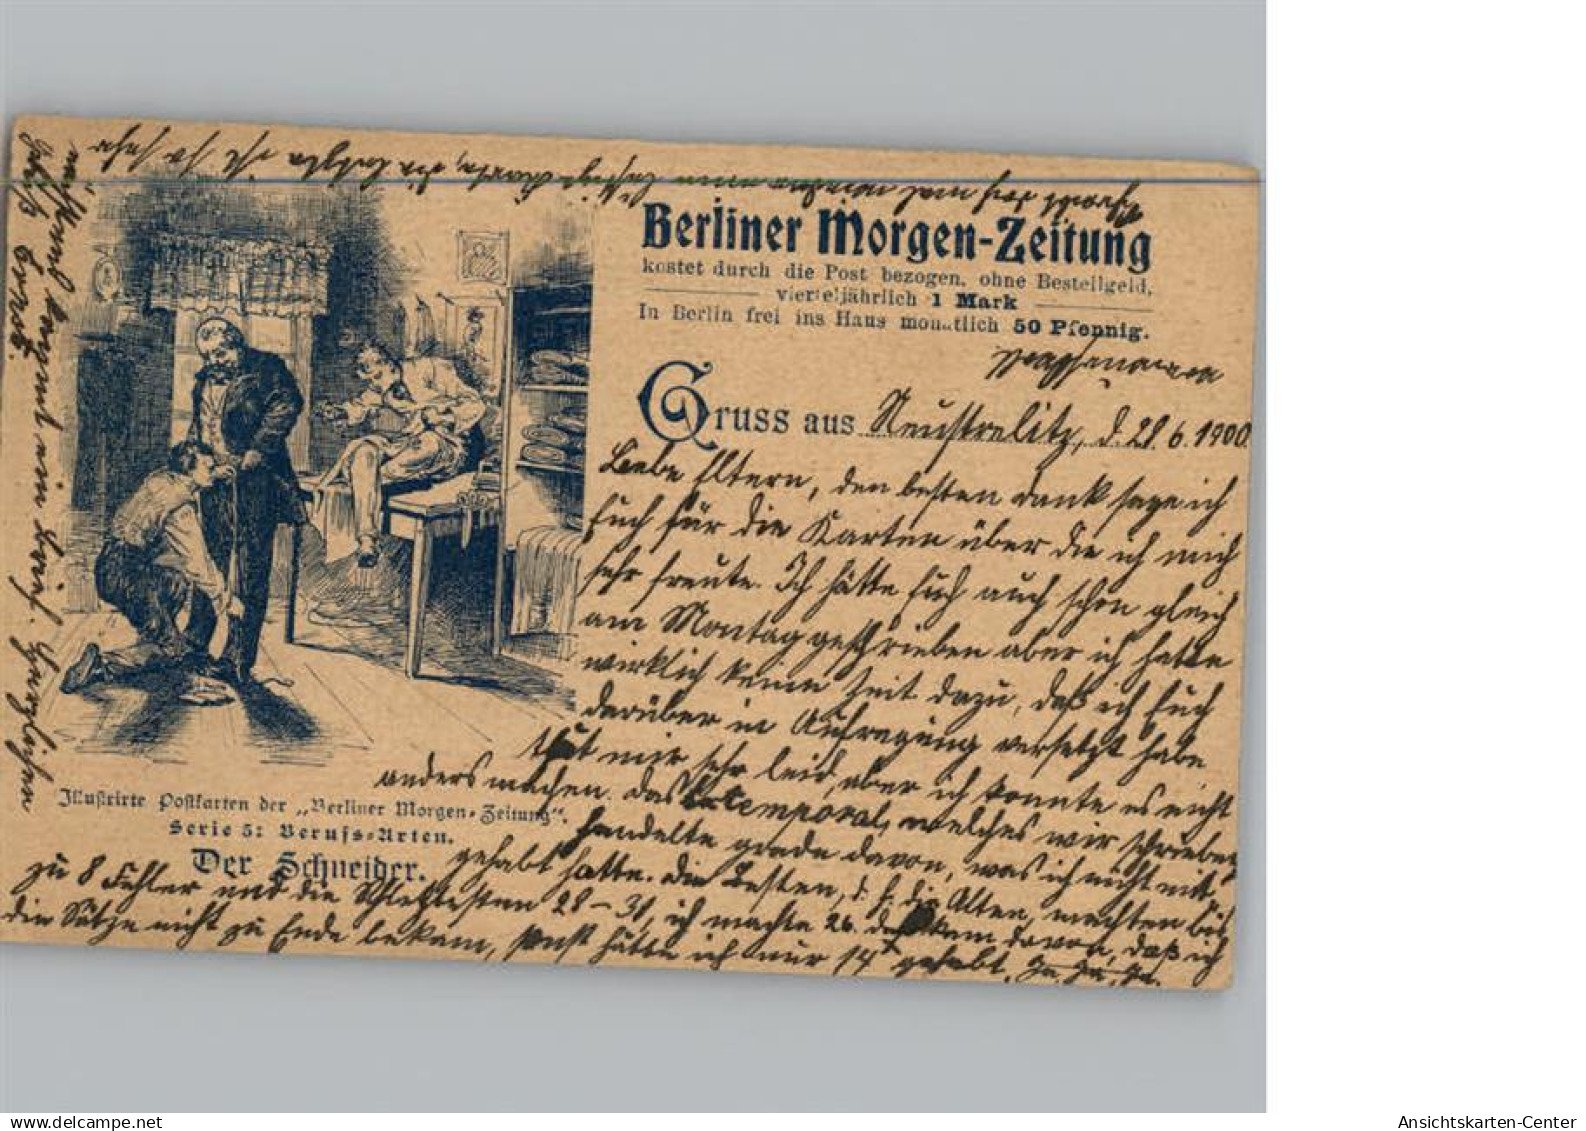 Berliner Morgen-Zeitung
kostet durch die Post bezogen, ohne Bestellgeld,
vierteljährlich 1 Mark
In Berlin frei ins Haus monatlich 50 Pfennig.
Gruss aus Neustrelitz, d. 28.6.1900.
Liebe Eltern, den besten Dank sage ich
Euch für die Karten über die ich mich
sehr freute. Ich hätte Euch auch schon gleich
am Montag geschrieben aber ich hatte
wirklich keine Zeit dazu, daß ich Euch
darüber in Aufregung versetzt habe
thut mir sehr leid, aber ich konnte es nicht
anders machen. Das Extemporal, welches wir schrieben
handelte grade davon, was ich nicht mit
gehabt hatte. Die Besten, d. h. die Alten, machten bis
zu 8 Fehler und die Schlechtesten 28-31, ich machte 26. das kam davon, daß ich
die Sätze nicht zu Ende bekam, sonst hätte ich nur 14 gehabt. Ja, Ja, Ja.
Illustrirte Postkarten der „Berliner Morgen-Zeitung“.
Serie 5: Berufs-Arten.
Der Schneider.
Ansichtskarten-Center